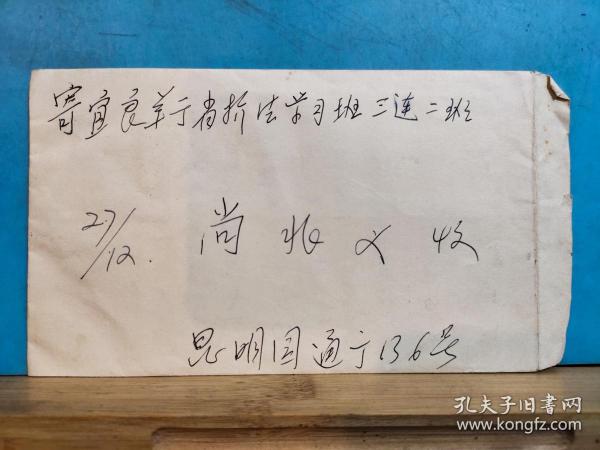 寄宜良羊于省折法学习班三连二班
27/12.
尚兆义收
昆明园通于136号
孔夫子旧书网
www.kongfz.com